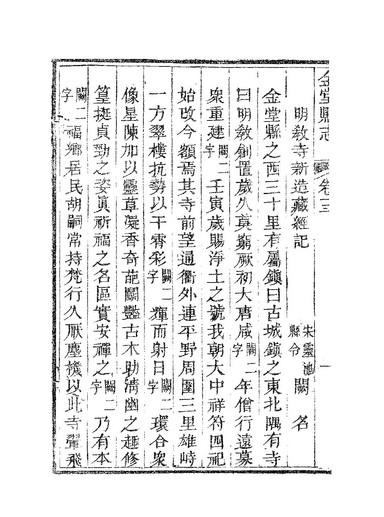 金堂縣志 卷三 一
明教寺新造藏經記 宋靈池縣令 闕名
金堂縣之西三十里有屬鎮曰古城鎮之東北隅有寺
曰明教創置歲久莫窮厥初大唐咸闕二字年僧行遠募
衆重建闕二字壬寅歲賜淨土之號我朝大中祥符四祀
始改今額焉其寺前望通衢外連平野周圍三里雄峙
一方翠樓抗勢以干霄彩闕二字輝而射日闕二字環合衆
像星陳加以靈草凝香奇葩鬬豔古木助清幽之趣修
篁挺貞勁之姿眞祈福之名區實安禪之闕二字乃有本
闕二字福鄉居民胡嗣常持梵行久厭塵機以此寺翬飛